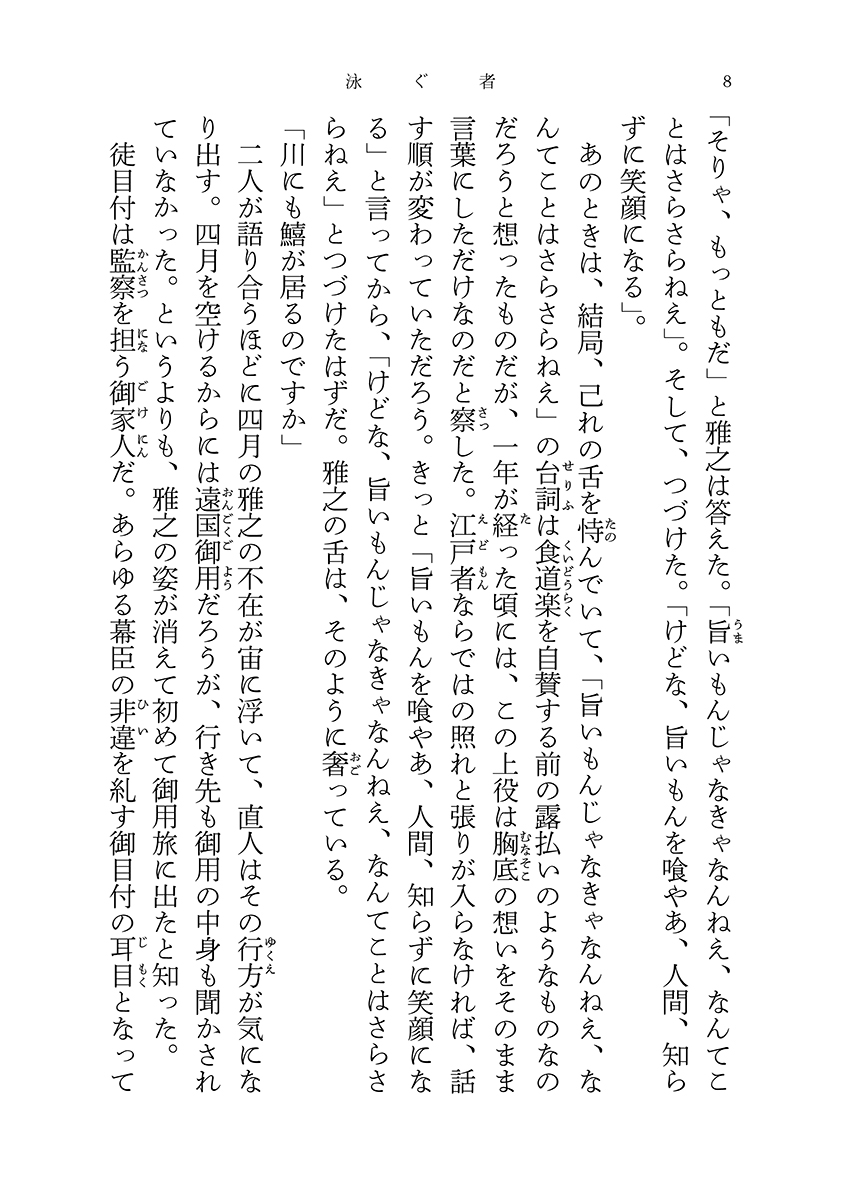 泳ぐ者
8
「そりゃ、もっともだ」と雅之は答えた。「旨いもんじゃなきゃなんねえ、なんてこ
とはさらさらねえ」。そして、つづけた。「けどな、旨いもんを喰やあ、人間、知ら
ずに笑顔になる」。
あのときは、結局、己れの舌を恃んでいて、「旨いもんじゃなきゃなんねえ、な
んてことはさらさらねえ」の台詞は食道楽を自賛する前の露払いのようなものなの
だろうと想ったものだが、一年が経った頃には、この上役は胸底の想いをそのまま
言葉にしただけなのだと察した。江戸者ならではの照れと張りが入らなければ、話
す順が変わっていただろう。きっと「旨いもんを喰やあ、人間、知らずに笑顔にな
る」と言ってから、「けどな、旨いもんじゃなきゃなんねえ、なんてことはさらさ
らねえ」とつづけたはずだ。雅之の舌は、そのように奢っている。
「川にも鱚が居るのですか」
二人が語り合うほどに四月の雅之の不在が宙に浮いて、直人はその行方が気にな
り出す。四月を空けるからには遠国御用だろうが、行き先も御用の中身も聞かされ
ていなかった。というよりも、雅之の姿が消えて初めて御用旅に出たと知った。
徒目付は監察を担う御家人だ。あらゆる幕臣の非違を糺す御目付の耳目となって